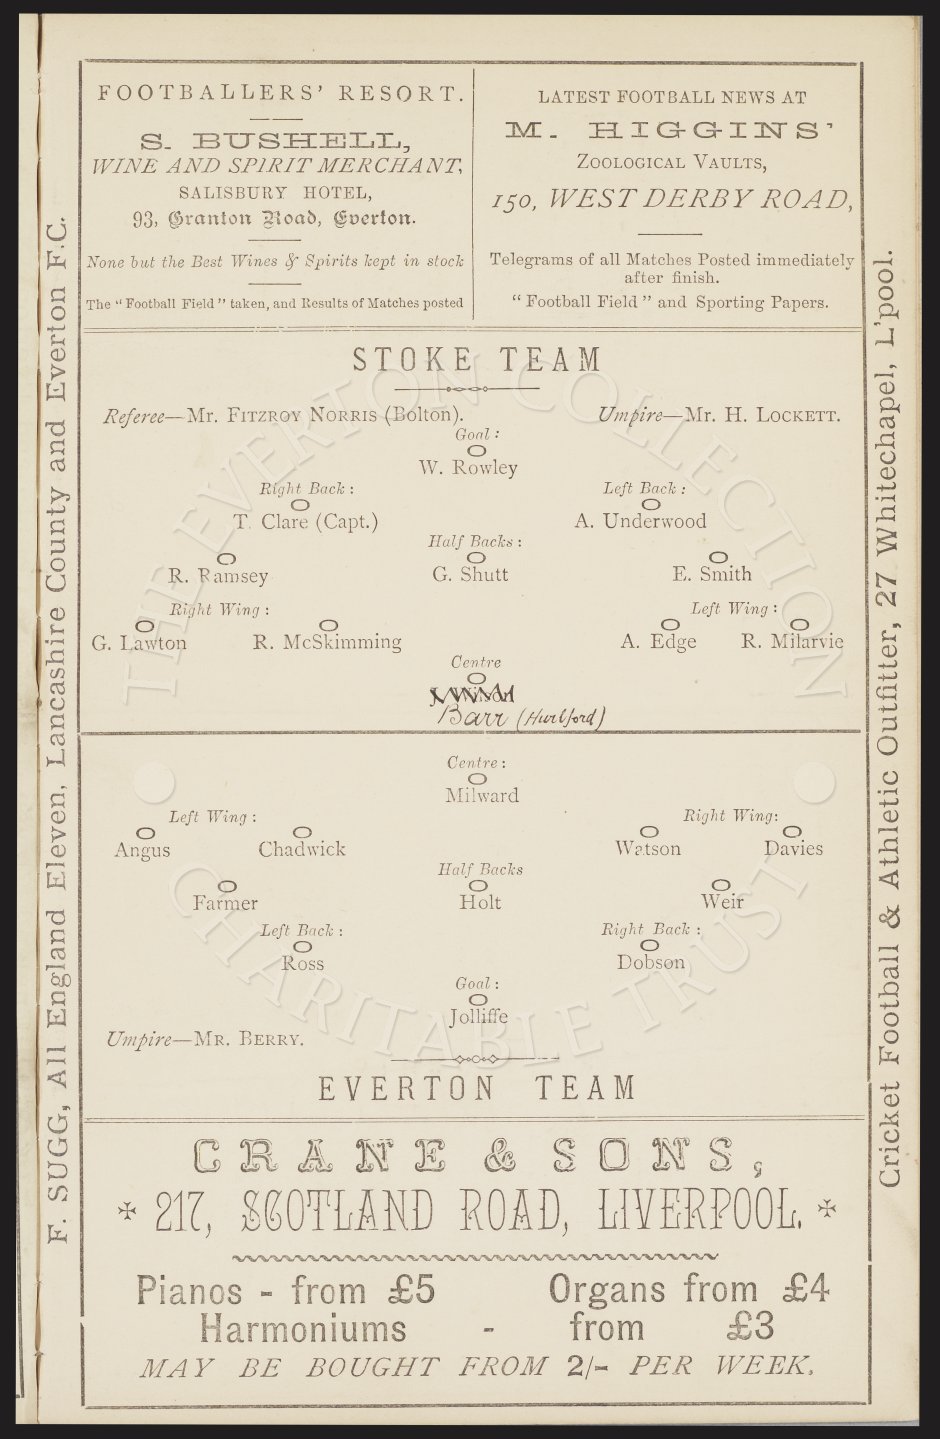 FOOTBALLERS' RESORT.
S. BUSHELL,
WINE AND SPIRIT MERCHANT,
SALISBURY HOTEL,
93, Granton Road, Everton.
None but the Best Wines & Spirits kept in stock
The "Football Field" taken, and Results of Matches posted
LATEST FOOTBALL NEWS AT
M. HIGGINS'
ZOOLOGICAL VAULTS,
150, WEST DERBY ROAD,
Telegrams of all Matches Posted immediately
after finish.
"Football Field" and Sporting Papers.
F. SUGG, All England Eleven, Lancashire County and Everton F.C.
STOKE TEAM
Referee—Mr. FITZROY NORRIS (Bolton). Umpire—Mr. H. LOCKETT.
Goal:
W. Rowley
Right Back: Left Back:
T. Clare (Capt.) A. Underwood
Half Backs:
R. Ramsey G. Shutt E. Smith
Right Wing: Left Wing:
G. Lawton R. McSkimming A. Edge R. Milarvie
Centre
J. Wilson
Barr (Hurlford)
Centre:
Milward
Left Wing: Right Wing:
Angus Chadwick Watson Davies
Half Backs
Farmer Holt Weir
Left Back: Right Back:
Ross Dobson
Goal:
Jolliffe
Umpire—MR. BERRY.
EVERTON TEAM
CRANE & SONS,
217, SCOTLAND ROAD, LIVERPOOL.
Pianos - from £5 Organs from £4
Harmoniums - from £3
MAY BE BOUGHT FROM 2/- PER WEEK.
Cricket Football & Athletic Outfitter, 27 Whitechapel, L'pool.
THE EVERTON COLLECTION
CHARITABLE TRUST